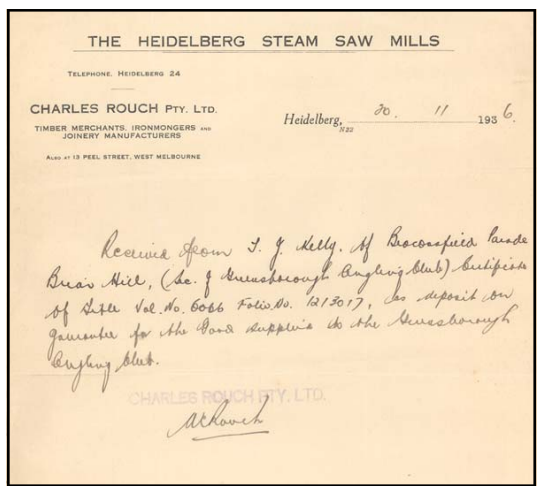 THE HEIDELBERG STEAM SAW MILLS
TELEPHONE, HEIDELBERG 24
CHARLES ROUCH PTY. LTD.
TIMBER MERCHANTS, IRONMONGERS AND
JOINERY MANUFACTURERS
ALSO AT 13 PEEL STREET, WEST MELBOURNE
Heidelberg, 30. 11 1936.
N22
Received from T. J. Kelly. of Beaconsfield Parade
Briar Hill, (Sec. of Greensborough Angling Club) Certificate
of Title Vol. No. 6066 Folio No. 1213017, as deposit or
Guarantee for the Good supplied to the Greensborough
Angling Club.
CHARLES ROUCH PTY. LTD.
ACRouch